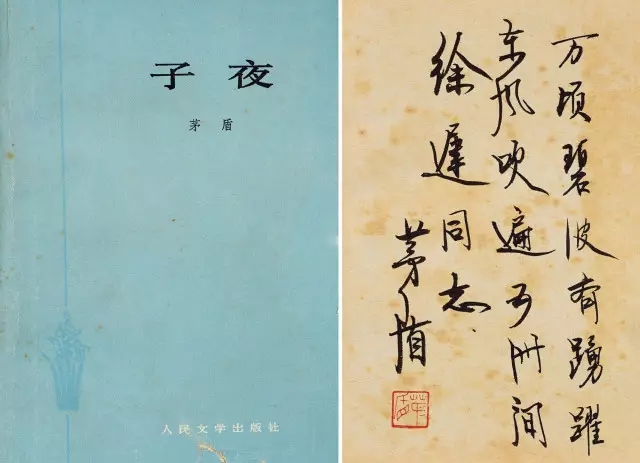 子夜
茅盾
人民文学出版社
万顷碧波踴躍
东风吹遍间
徐遲同志
茅盾